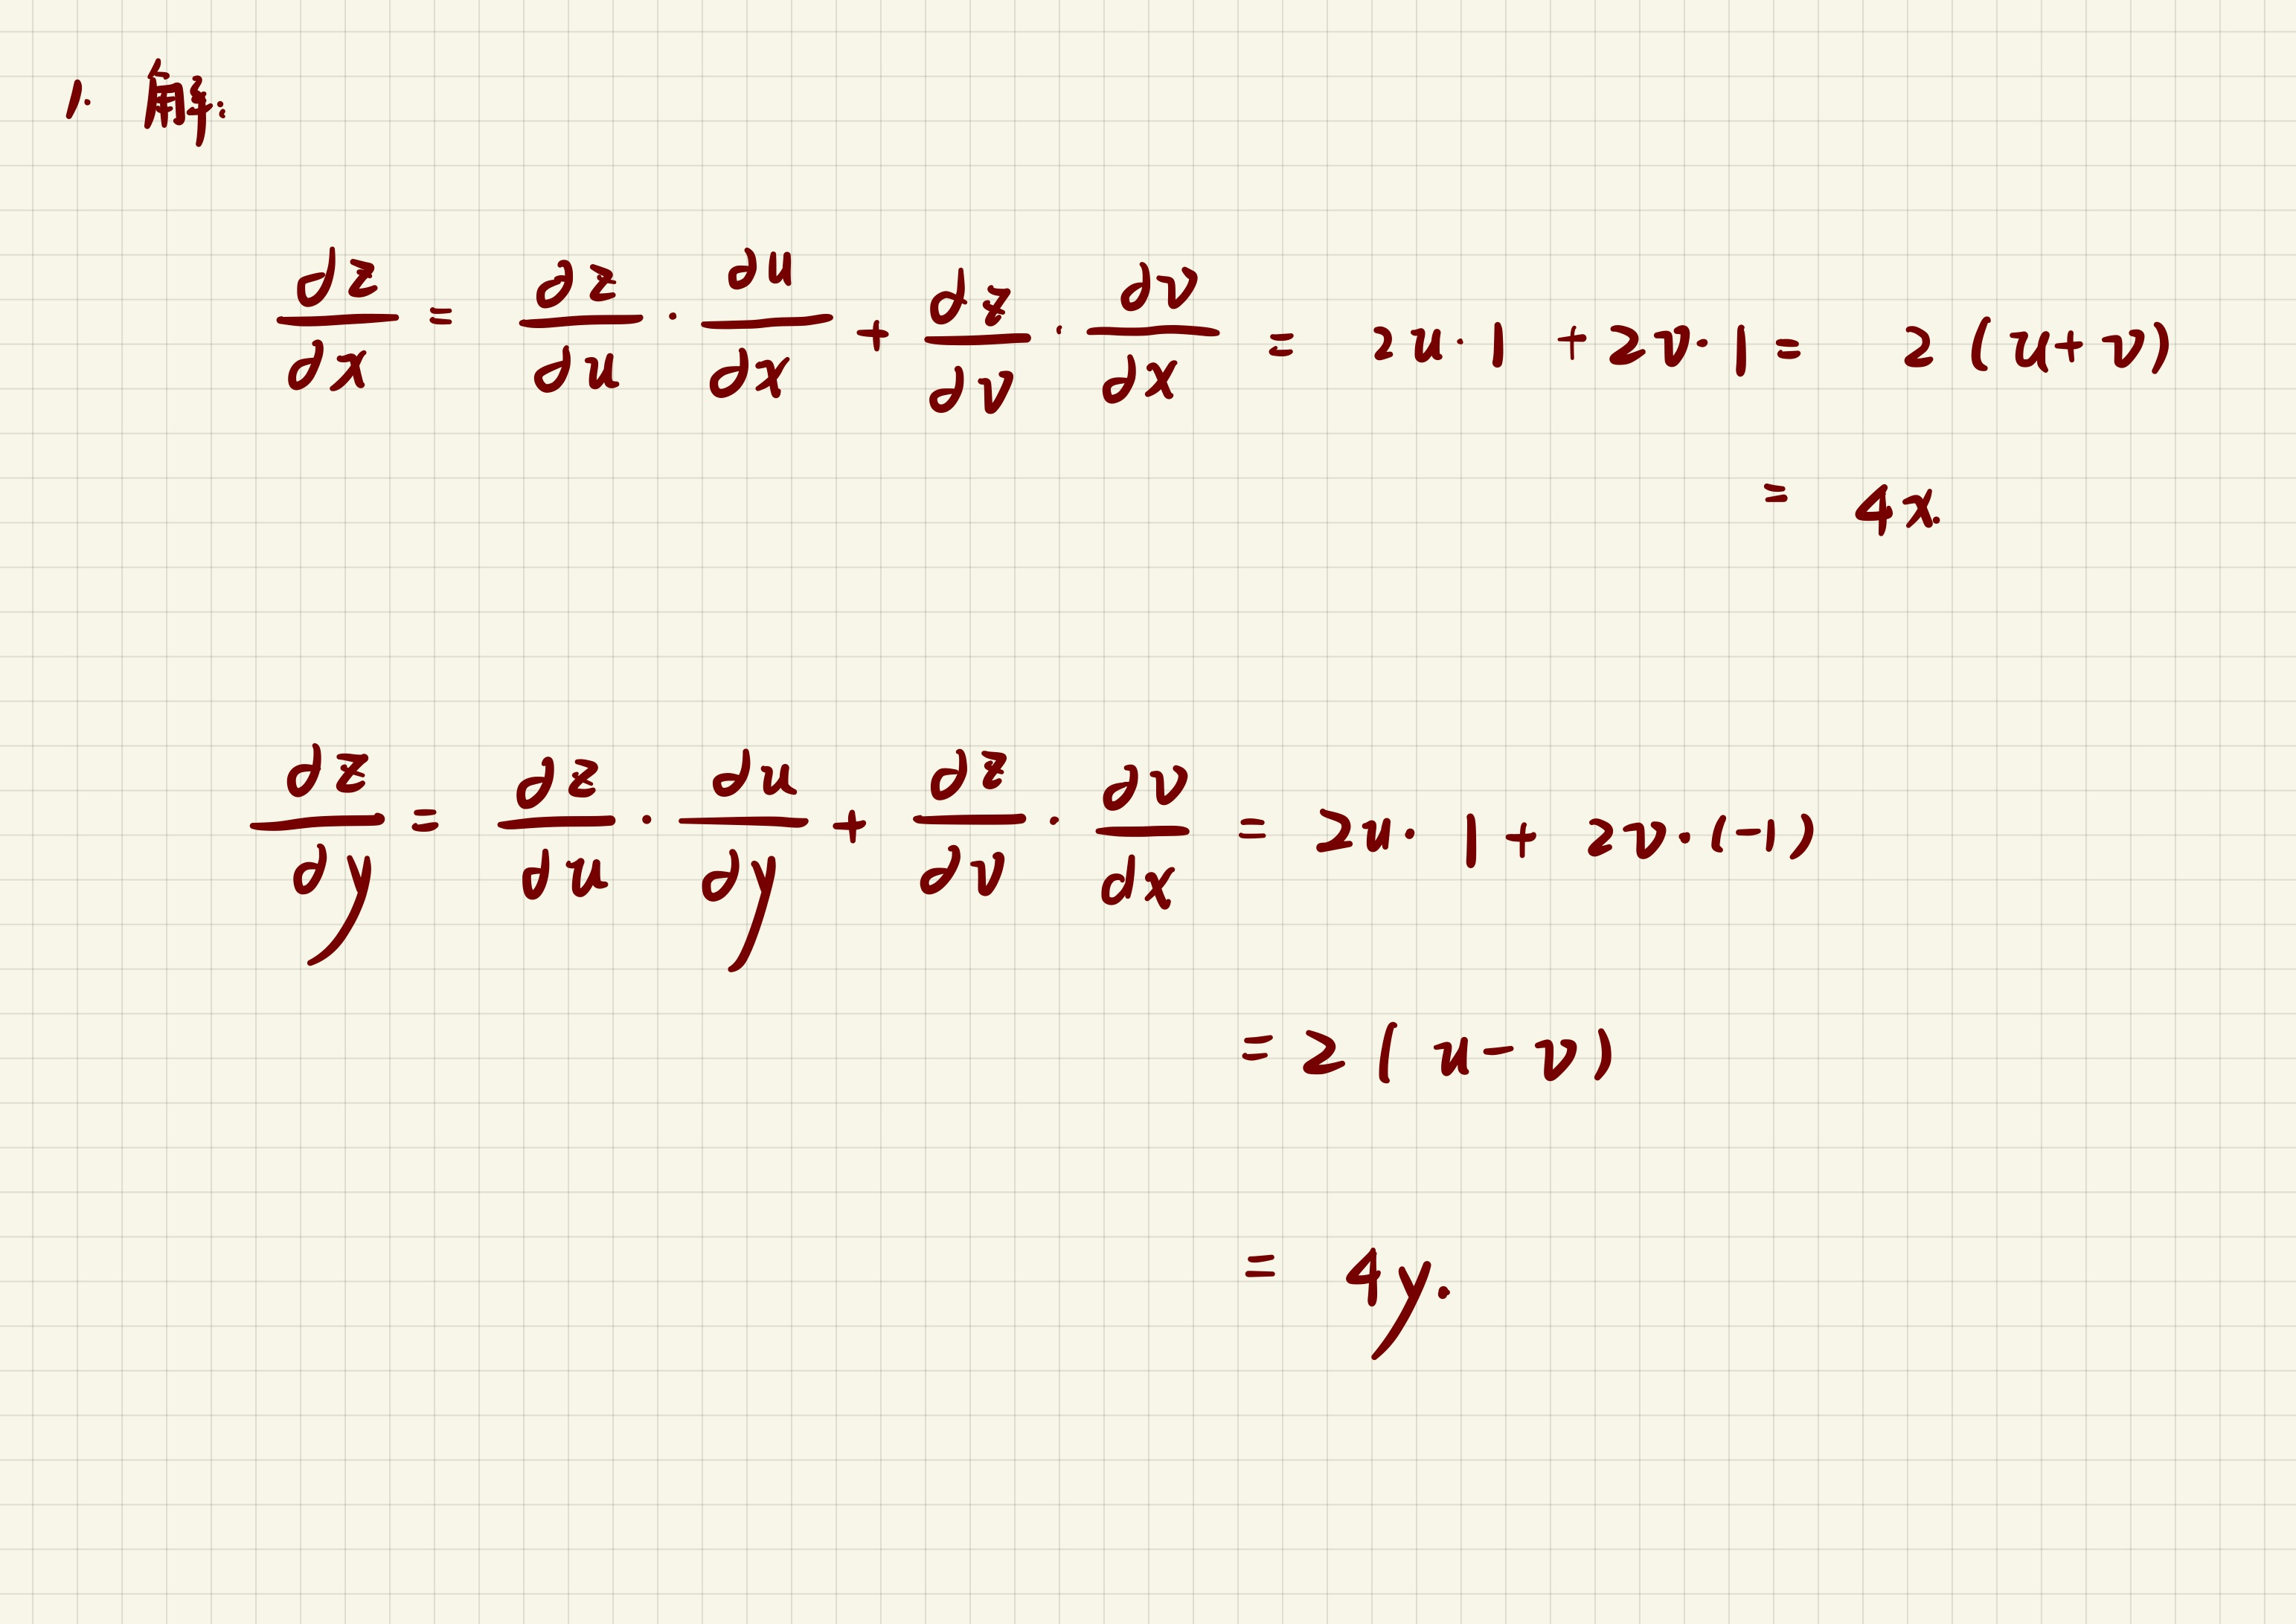 1. 解:
∂z/∂x = ∂z/∂u · ∂u/∂x + ∂z/∂v · ∂v/∂x = 2u·1 + 2v·1 = 2(u+v)
= 4x.
∂z/∂y = ∂z/∂u · ∂u/∂y + ∂z/∂v · ∂v/dx = 2u·1 + 2v·(-1)
= 2(u-v)
= 4y.